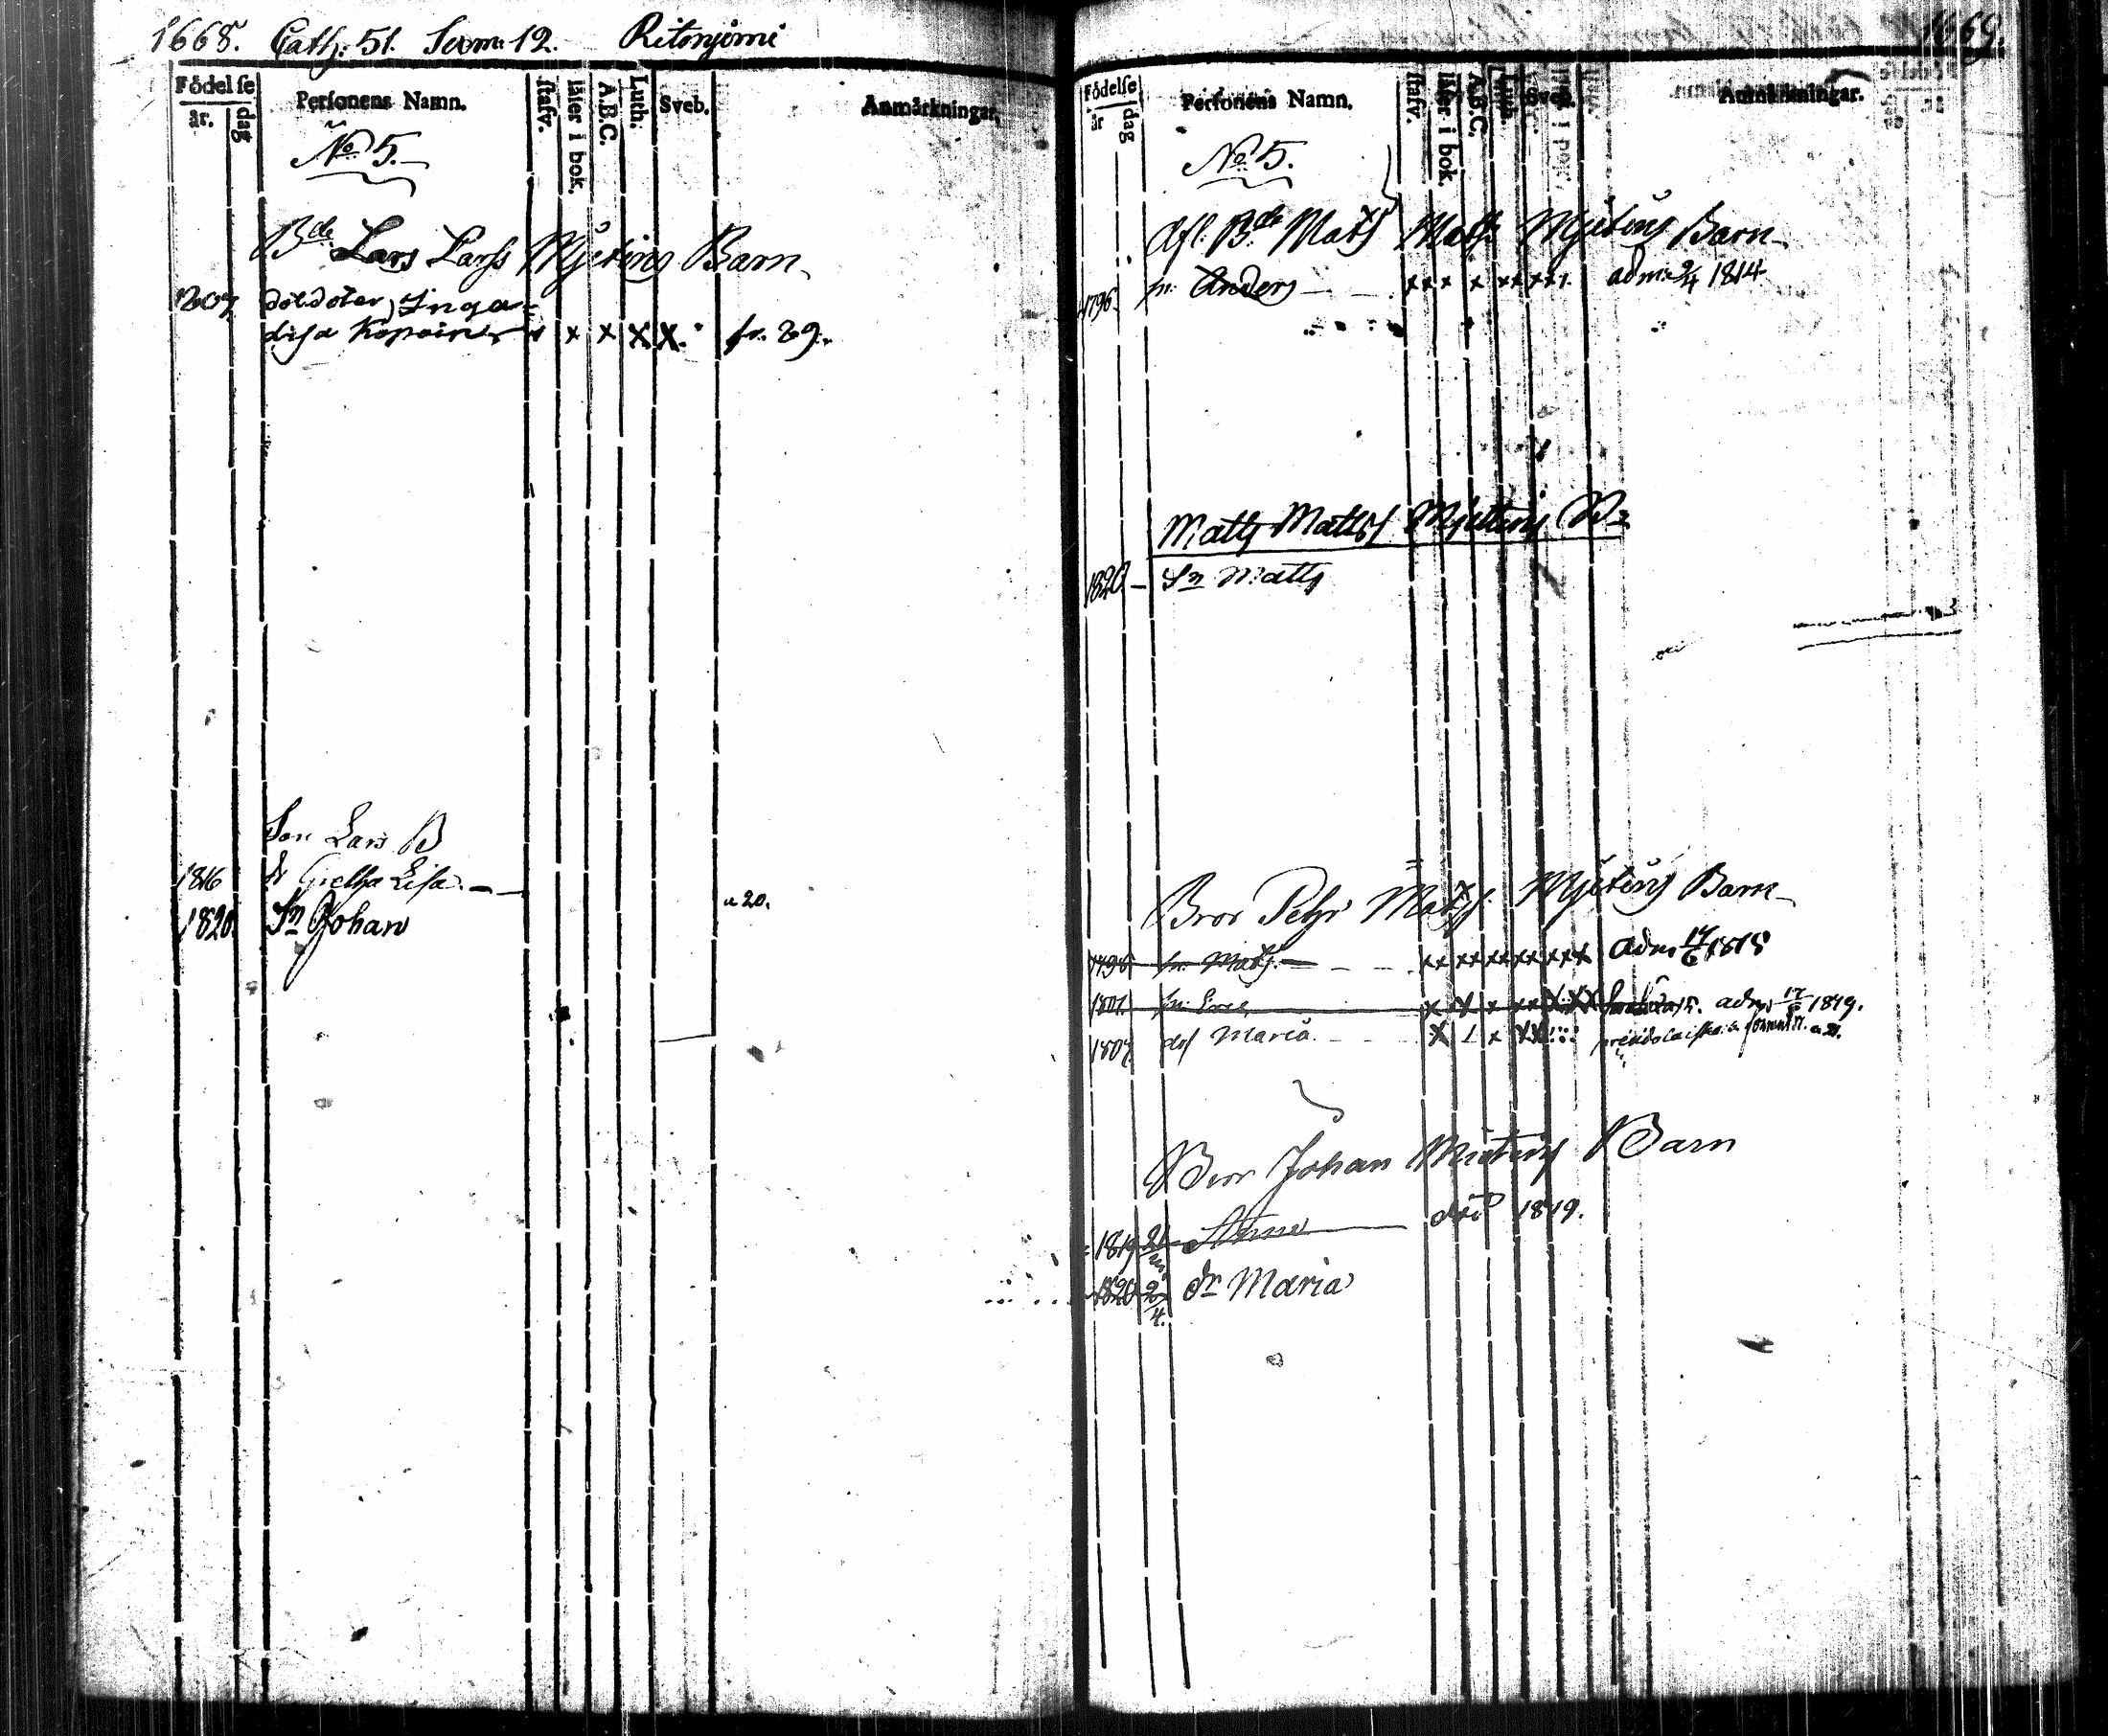 1668. Cath: 51. Serm: 12. Ritonjemi
Födelse
år. dag
Personens Namn.
stafv.
läser i bok.
A.B.C.
Luth.
Sveb.
Anmärkningar.
No 5.
Bde Lars Larss Mjetins Barn
1807 dotdoter Inga
Lisa Kopoin x x x x x. fr. 29.
Son Lars B
1816 dr Gretha Lisa. — —
1820. Sn Johan
u 20.
1669.
Födelse
år dag
Personens Namn.
stafv.
läser i bok.
A.B.C.
Luth.
Sveb.
Anmärkningar.
No 5.
Afl. Bde Mats Mats. Mjetins Barn
1796 sn: Anders — x x x x x x x x adm: 1814
Matts Matts Mjettins Bn
1820. — Sn Matts
Bror Pehr Mats. Mjetins Barn
1798 sn: Mats. — xx xx xx xx xxx adm 17/6 1818
1801. sn: x x x xx x xx adm 1819.
1807 dr Maria. x / x xx
Bror Johan Mietins Barn
1819 21 Anna död 1819.
1820 2/4. dr Maria